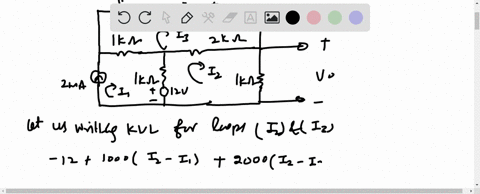 1kΩ I3 2kΩ
+
I2
2mA I1 1kΩ 1kΩ Vo
+ 12V
- -
Let us writing KVL for loops (I3) & (I2)
-12 + 1000(I2 - I1) + 2000(I2 - I